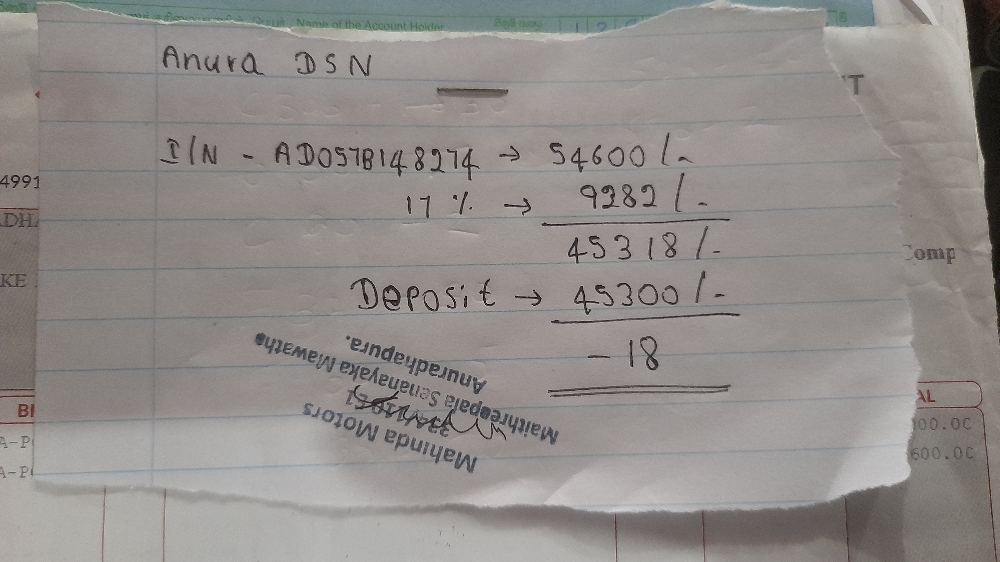 Name of the Account Holder
Anura DSN
I/N - AD057B148274 → 54600/-
17 % → 9282/-
45318/-
Deposit → 45300/-
- 18
Mahinda Motors
Maithreepala Senanayaka Mawatha
Anuradhapura.
4991
KE
Comp
AL
00.00
600.00
A-P
A-P